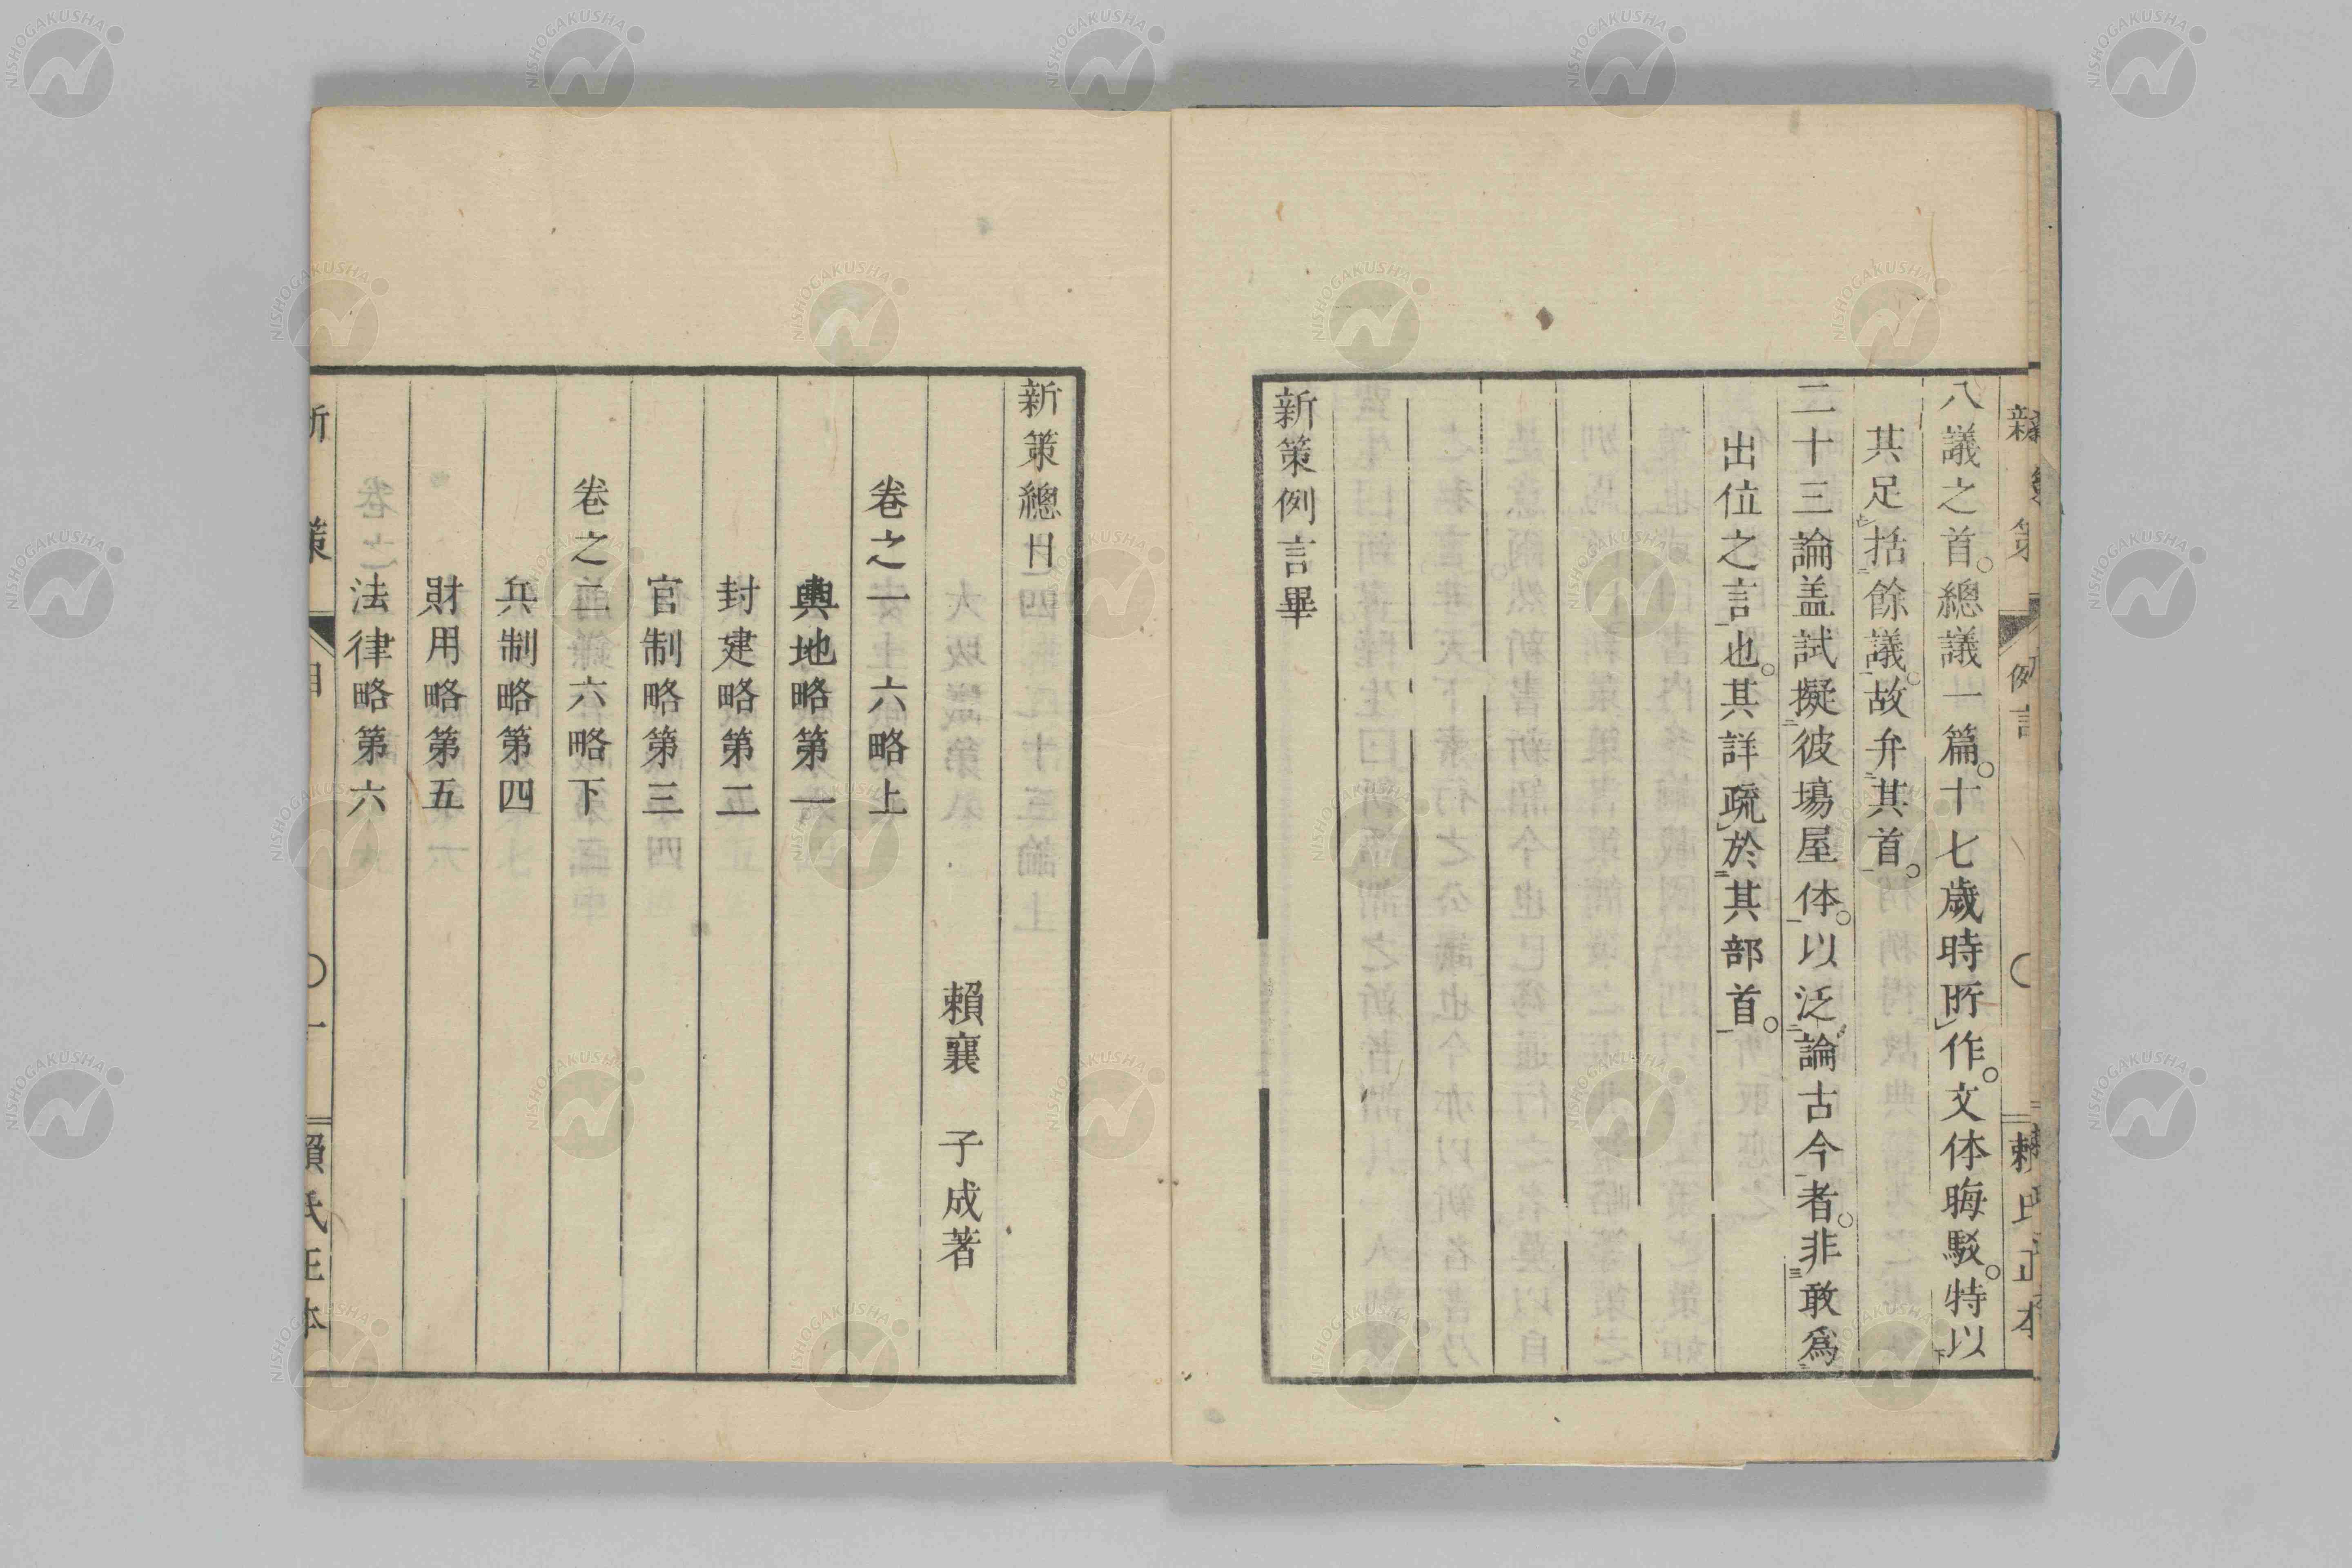 八議之首。總議一篇。十七歲時所作。文体晦駁。特以
其足括餘議。故弁其首。
二十三論盖試擬彼場屋体。以泛論古今者。非敢爲
出位之言也。其詳疏於其部首。
新策例言畢
新策總目
賴襄 子成著
卷之一六略上
輿地略第一
封建略第二
官制略第三
卷之二六略下
兵制略第四
財用略第五
法律略第六
新策 目 〇一 賴氏正本
NISHOGAKUSHA